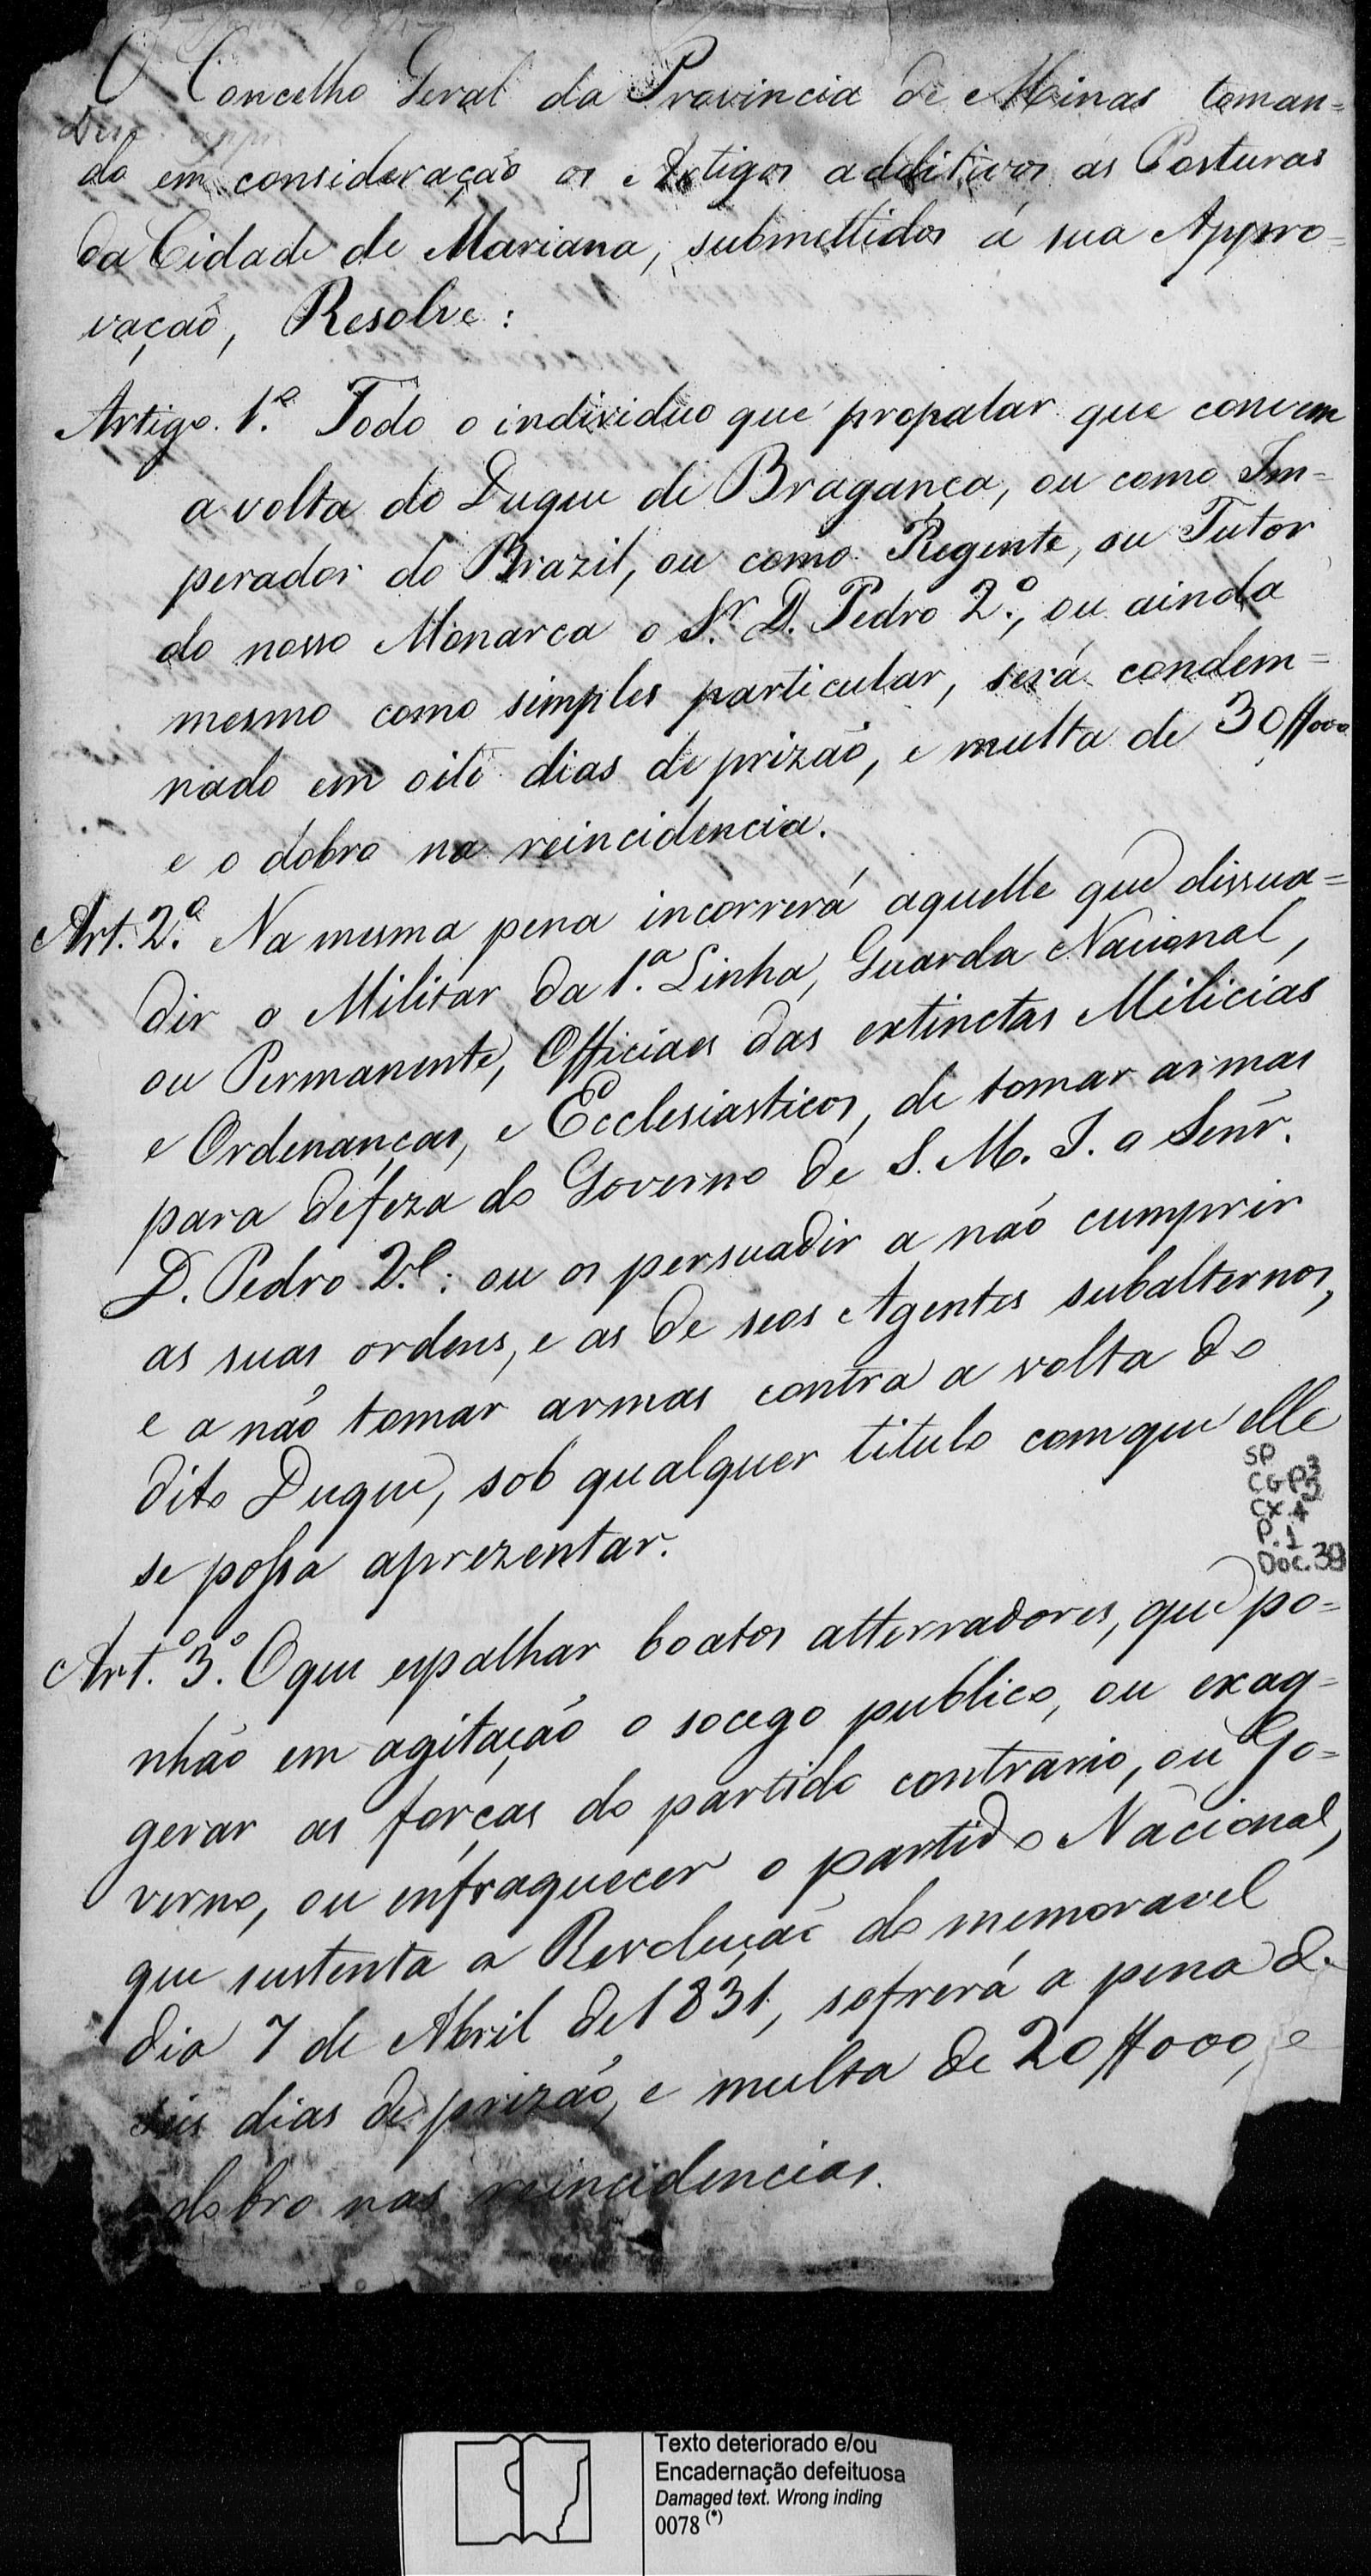 O Concelho Geral da Provincia de Minas toman=
do em consideração os Artigos additivos ás Posturas
da Cidade de Mariana, submettidos á sua Appro=
vação, Resolve:
Artigo. 1.º Todo o individuo que propalar que convem
a volta do Duque de Bragança, ou como Im=
perador do Brazil, ou como Regente, ou Tutor
do nosso Monarca o Sr. D. Pedro 2.º, ou ainda
mesmo como simples particular, será condem=
nado em oito dias de prizão, e multa de 30$000
e o dobro na reincidencia.
Art. 2.º Na mesma pena incorrerá aquelle que dissua=
dir o Militar da 1.ª Linha, Guarda Nacional,
ou Permanente, Officiaes das extinctas Milicias
e Ordenanças, e Ecclesiasticos, de tomar armas
para defeza do Governo de S. M. I. o Senr.
D. Pedro 2.º: ou os persuadir a não cumprir
as suas ordens, e as de seos Agentes subalternos,
e a não tomar armas contra a volta do
dito Duque, sob qualquer titulo com que elle
se possa aprezentar.
SP
CGP3
CX.
P.1
Doc.39
Art.º 3.º O que espalhar boatos atterradores, que po=
nhão em agitação o socego publico, ou exag=
gerar as forças do partido contrario, ou Go=
verno, ou enfraquecer o partido Nacional,
que sustenta a Revolução do memoravel
dia 7 de Abril de 1831, sofrerá a pena de
seis dias de prizão, e multa de 20$000, e
o dobro nas reincidencias.
Texto deteriorado e/ou
Encadernação defeituosa
Damaged text. Wrong inding
0078 (*)